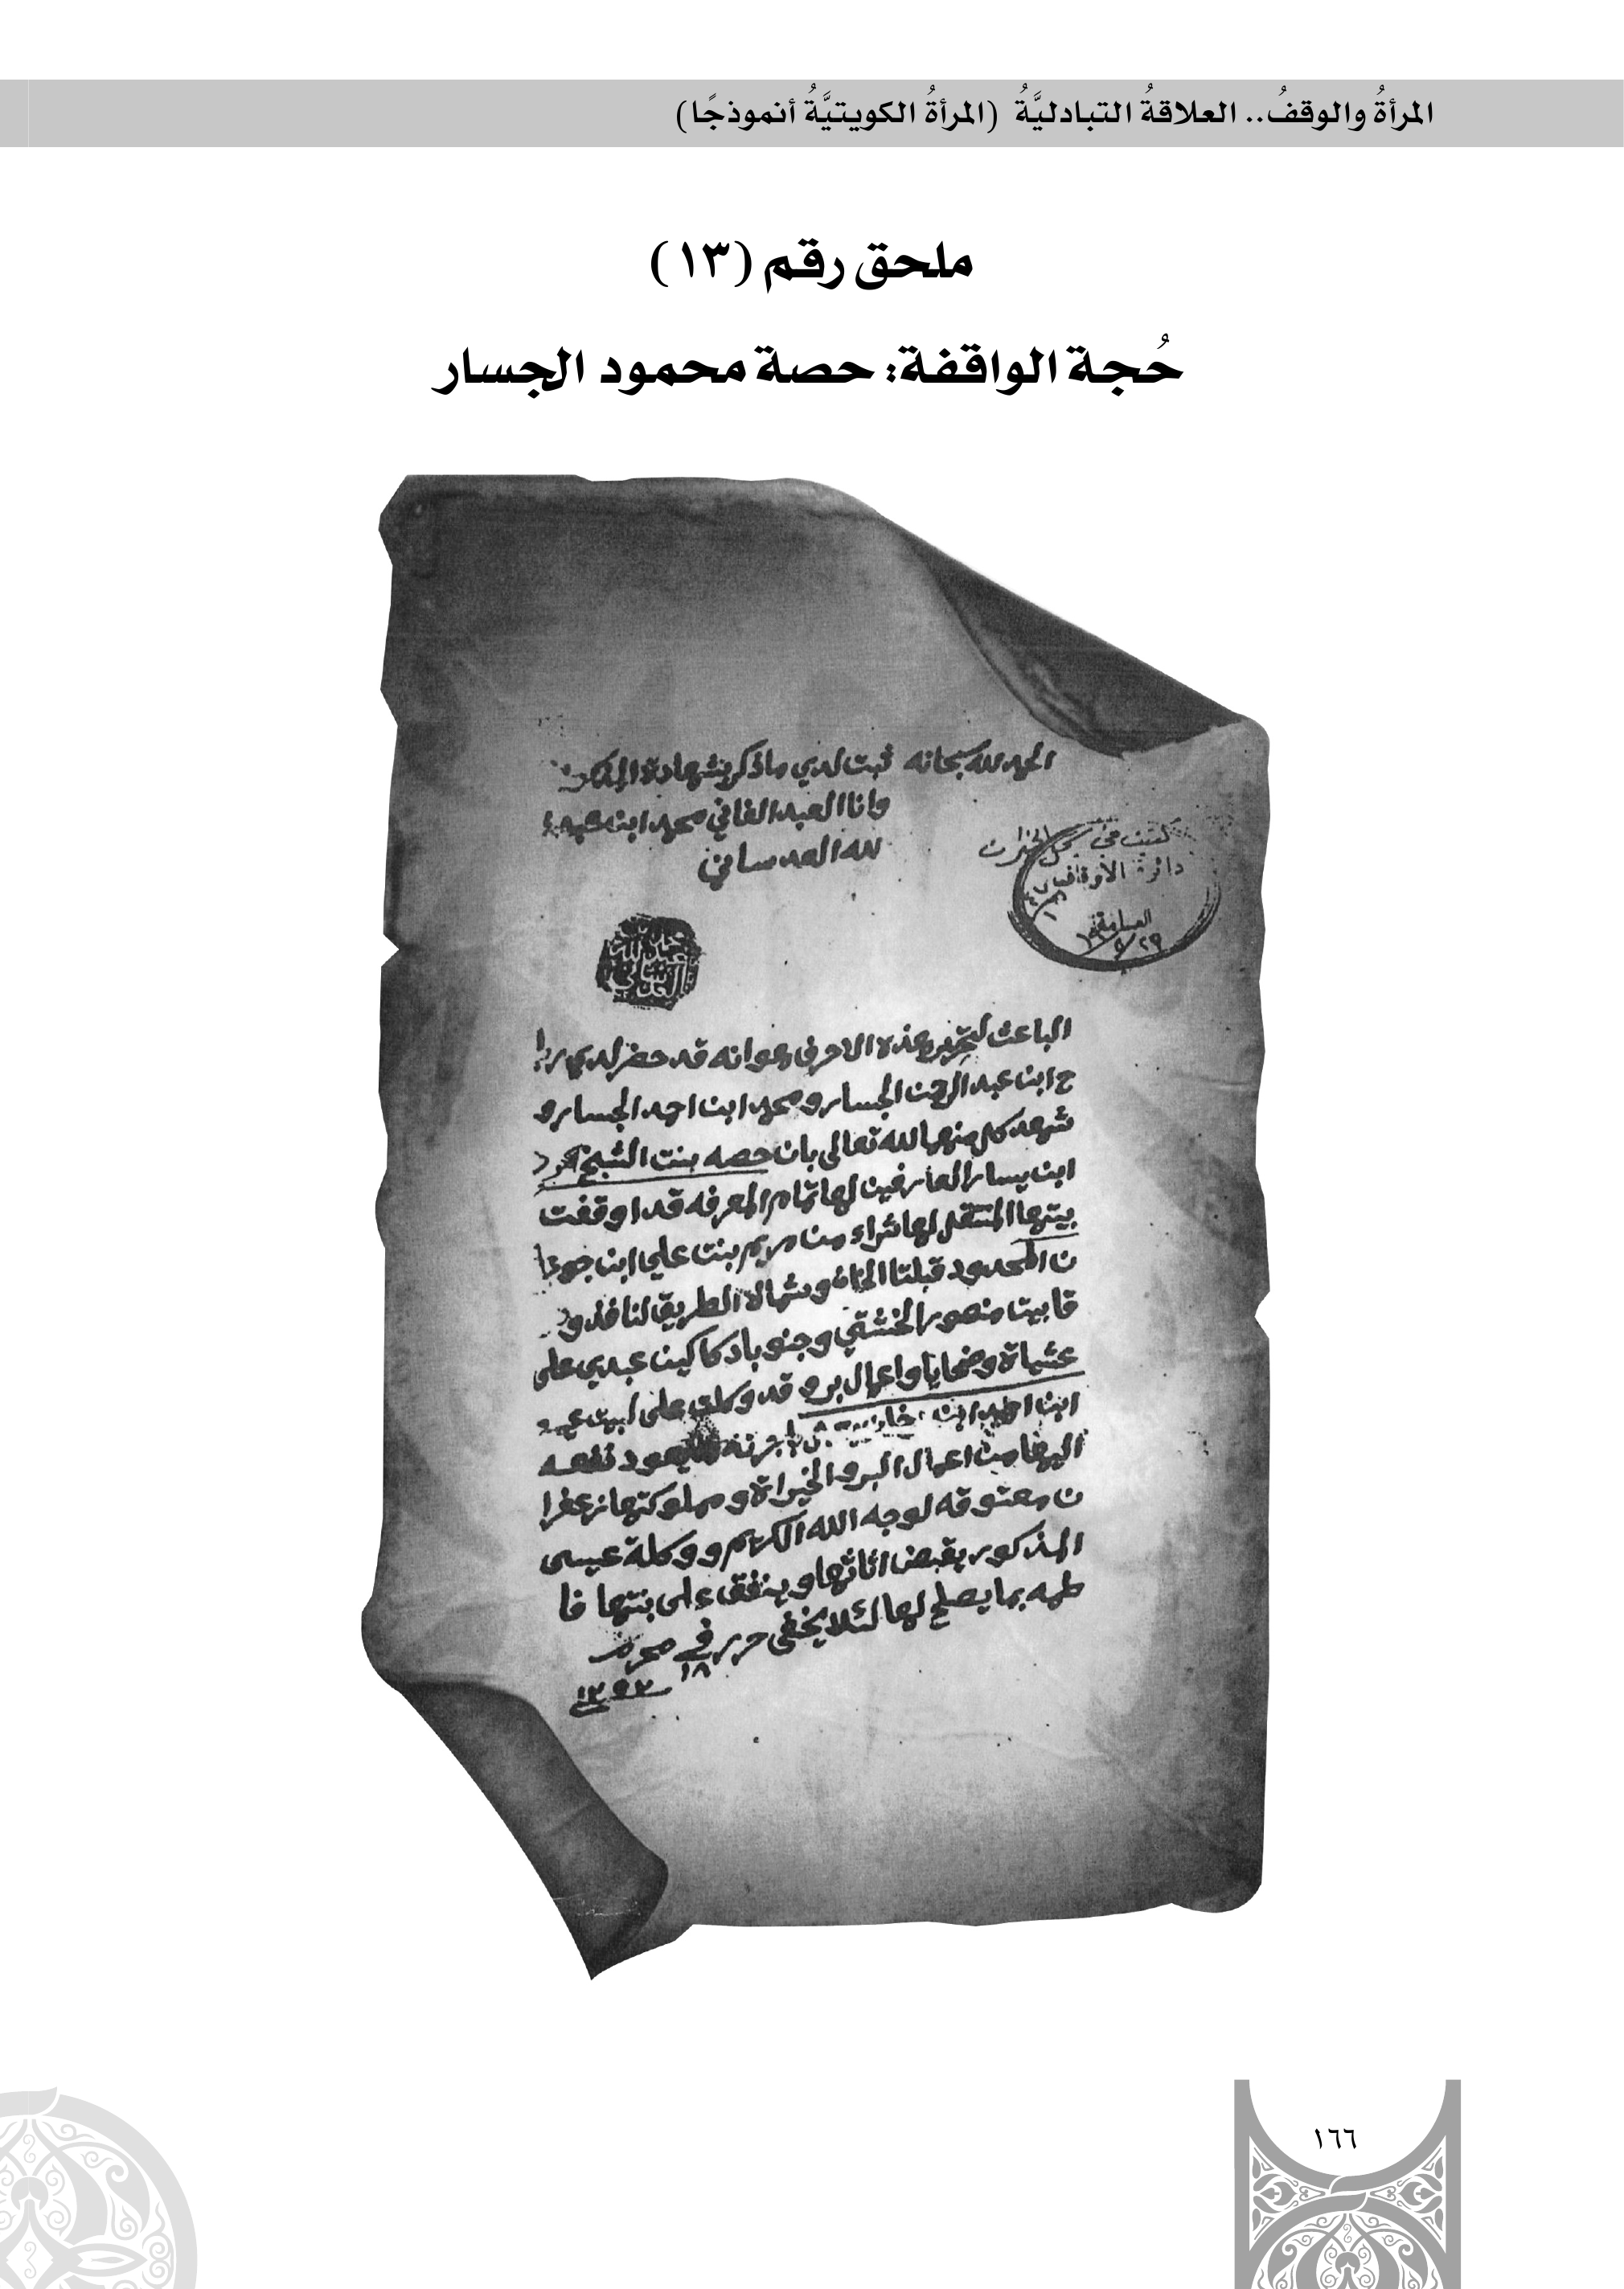 المرأةُ والوقفُ.. العلاقةُ التبادليَّةُ (المرأةُ الكويتيَّةُ أنموذجًا)
ملحق رقم (١٣)
حُجة الواقفة: حصة محمود الجسار
الحمد لله سبحانه ثبت لدي ما ذكر بشهادة
وانا العبد الفاني محمد ابن عبد ا
لله العدساني
دائرة الأوقاف
الباعث لتحرير هذه الاحرف هو انه قد حضر لدي ربا
ح ابن عبد الرحمن الجسار ومحمد ابن احمد الجسار و
شهد كل منهما لله تعالى بان حصه بنت الشيخ
ابن يسار العارفين لها تمام المعرفه قد اوقفت
بيتها المنتقل لها شراء من مريم بنت علي ابن جوعا
ن المحدود قبلتا الخان وشمالا الطريق النافذ و
قا بيت منصور الخشتي وجنوبا دكاكين عبدي على
عشياة وضحايا واعمال بر و قد وكلت على
ابن احمد ابن نفعه
اليها من اعمال البر والخيراة ومملوكتها زعفرا
ن معتوقه لوجه الله الكريم ووكلة عيسى
المذكور يقبض اثاثها وينفق على بنتها فا
طمه بما يصلح لها لئلا يخفى حرر في محرم
١٨ ١٢٩٢
١٦٦